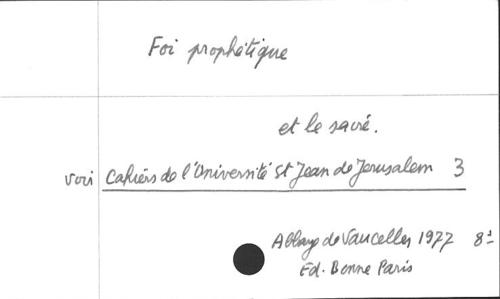 Foi prophétique
et le sacré.
voir Cahiers de l'Université St Jean de Jerusalem 3
Abbaye de Vaucelles 1977 8°
Ed. Bonne Paris